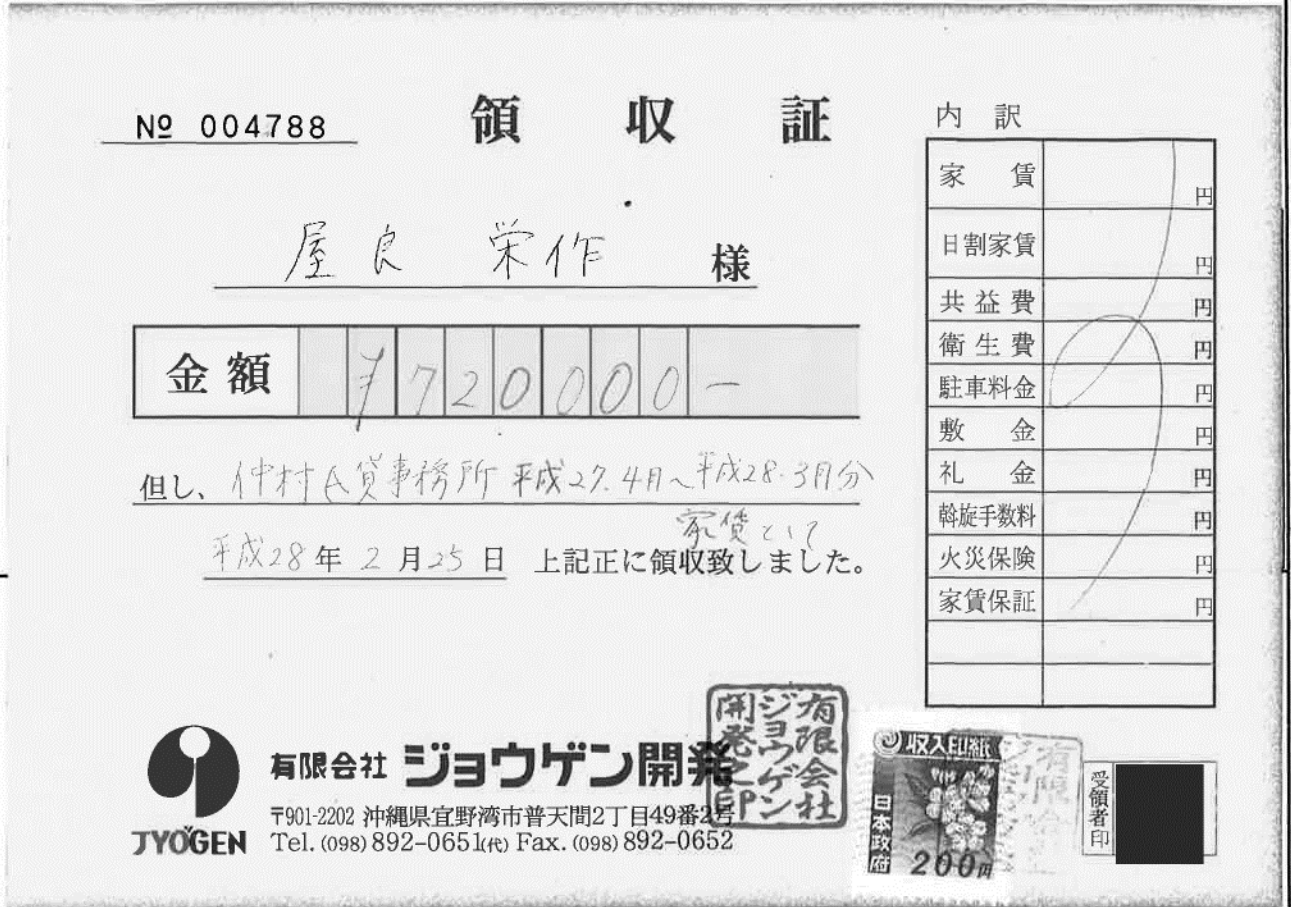 № 004788
領収証
屋良 栄作 様
金額 ¥720000-
但し、仲村氏貸事務所 平成27.4月〜平成28.3月分
家賃として
平成28年2月25日 上記正に領収致しました。
内訳
家賃 円
日割家賃 円
共益費 円
衛生費 円
駐車料金 円
敷金 円
礼金 円
斡旋手数料 円
火災保険 円
家賃保証 円
JYOGEN
有限会社 ジョウゲン開発
〒901-2202 沖縄県宜野湾市普天間2丁目49番2号
Tel. (098) 892-0651(代) Fax. (098) 892-0652
有限会社
ジョウゲン
開発之印
収入印紙
日本政府
200円
有限会社
受領者印